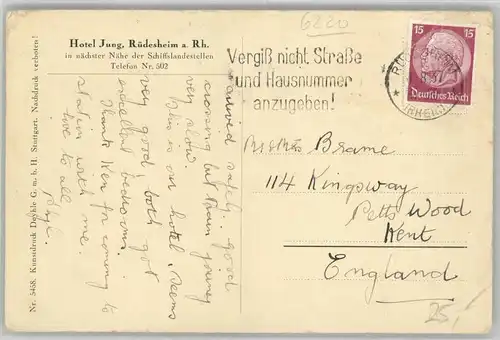 6220
Hotel Jung, Rüdesheim a. Rh.
in nächster Nähe der Schiffslandestellen
Telefon Nr. 502
Vergiß nicht Straße
und Hausnummer
anzugeben!
15 15
Deutsches Reich
(RHEIN)
Arrived safely.. good
crossing but train journey
very slow.
This is our hotel. Seems
very good, both got
excellent bedrooms.
Thank Ken for coming to
station with me.
Love to all
Brame
114 Kingsway
Petts Wood
Kent
England
25,-
Nr. 5458. Kunstdruck G. m. b. H. Stuttgart. Nachdruck verboten!